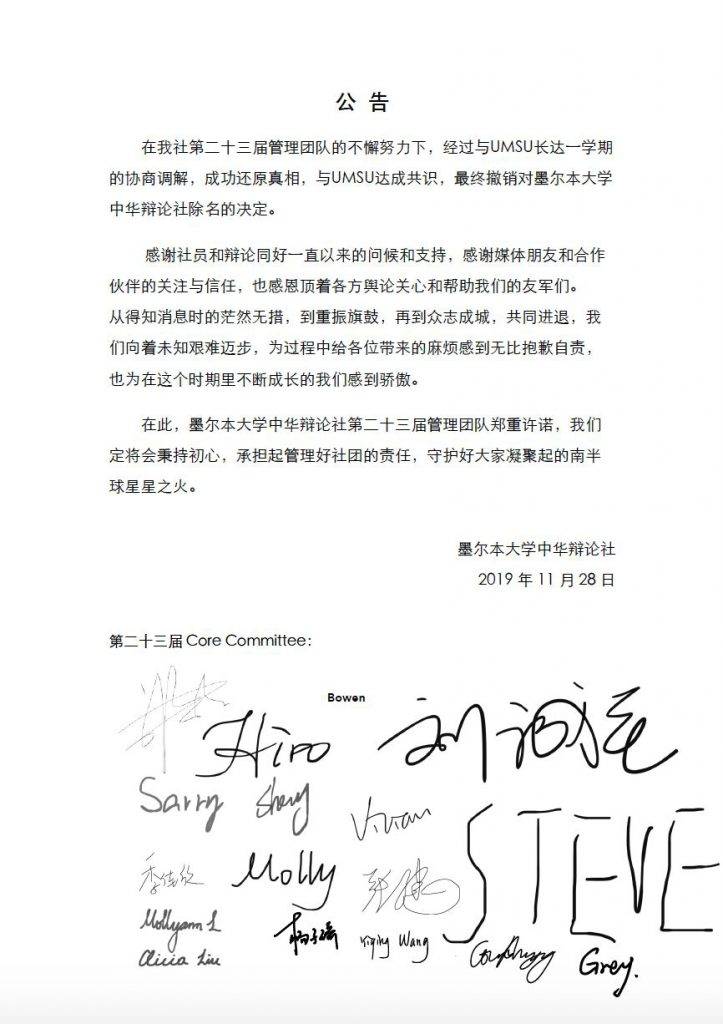 公 告
在我社第二十三届管理团队的不懈努力下，经过与UMSU长达一学期
的协商调解，成功还原真相，与UMSU达成共识，最终撤销对墨尔本大学
中华辩论社除名的决定。
感谢社员和辩论同好一直以来的问候和支持，感谢媒体朋友和合作
伙伴的关注与信任，也感恩顶着各方舆论关心和帮助我们的友军们。
从得知消息时的茫然无措，到重振旗鼓，再到众志成城，共同进退，我
们向着未知艰难迈步，为过程中给各位带来的麻烦感到无比抱歉自责，
也为在这个时期里不断成长的我们感到骄傲。
在此，墨尔本大学中华辩论社第二十三届管理团队郑重许诺，我们
定将会秉持初心，承担起管理好社团的责任，守护好大家凝聚起的南半
球星星之火。
墨尔本大学中华辩论社
2019 年 11 月 28 日
第二十三届 Core Committee：
Bowen
Hiro
Sarry
Vivian
STEVE
Molly
Mollyann L
Yiqing Wang
Grey.
Alicia Liu